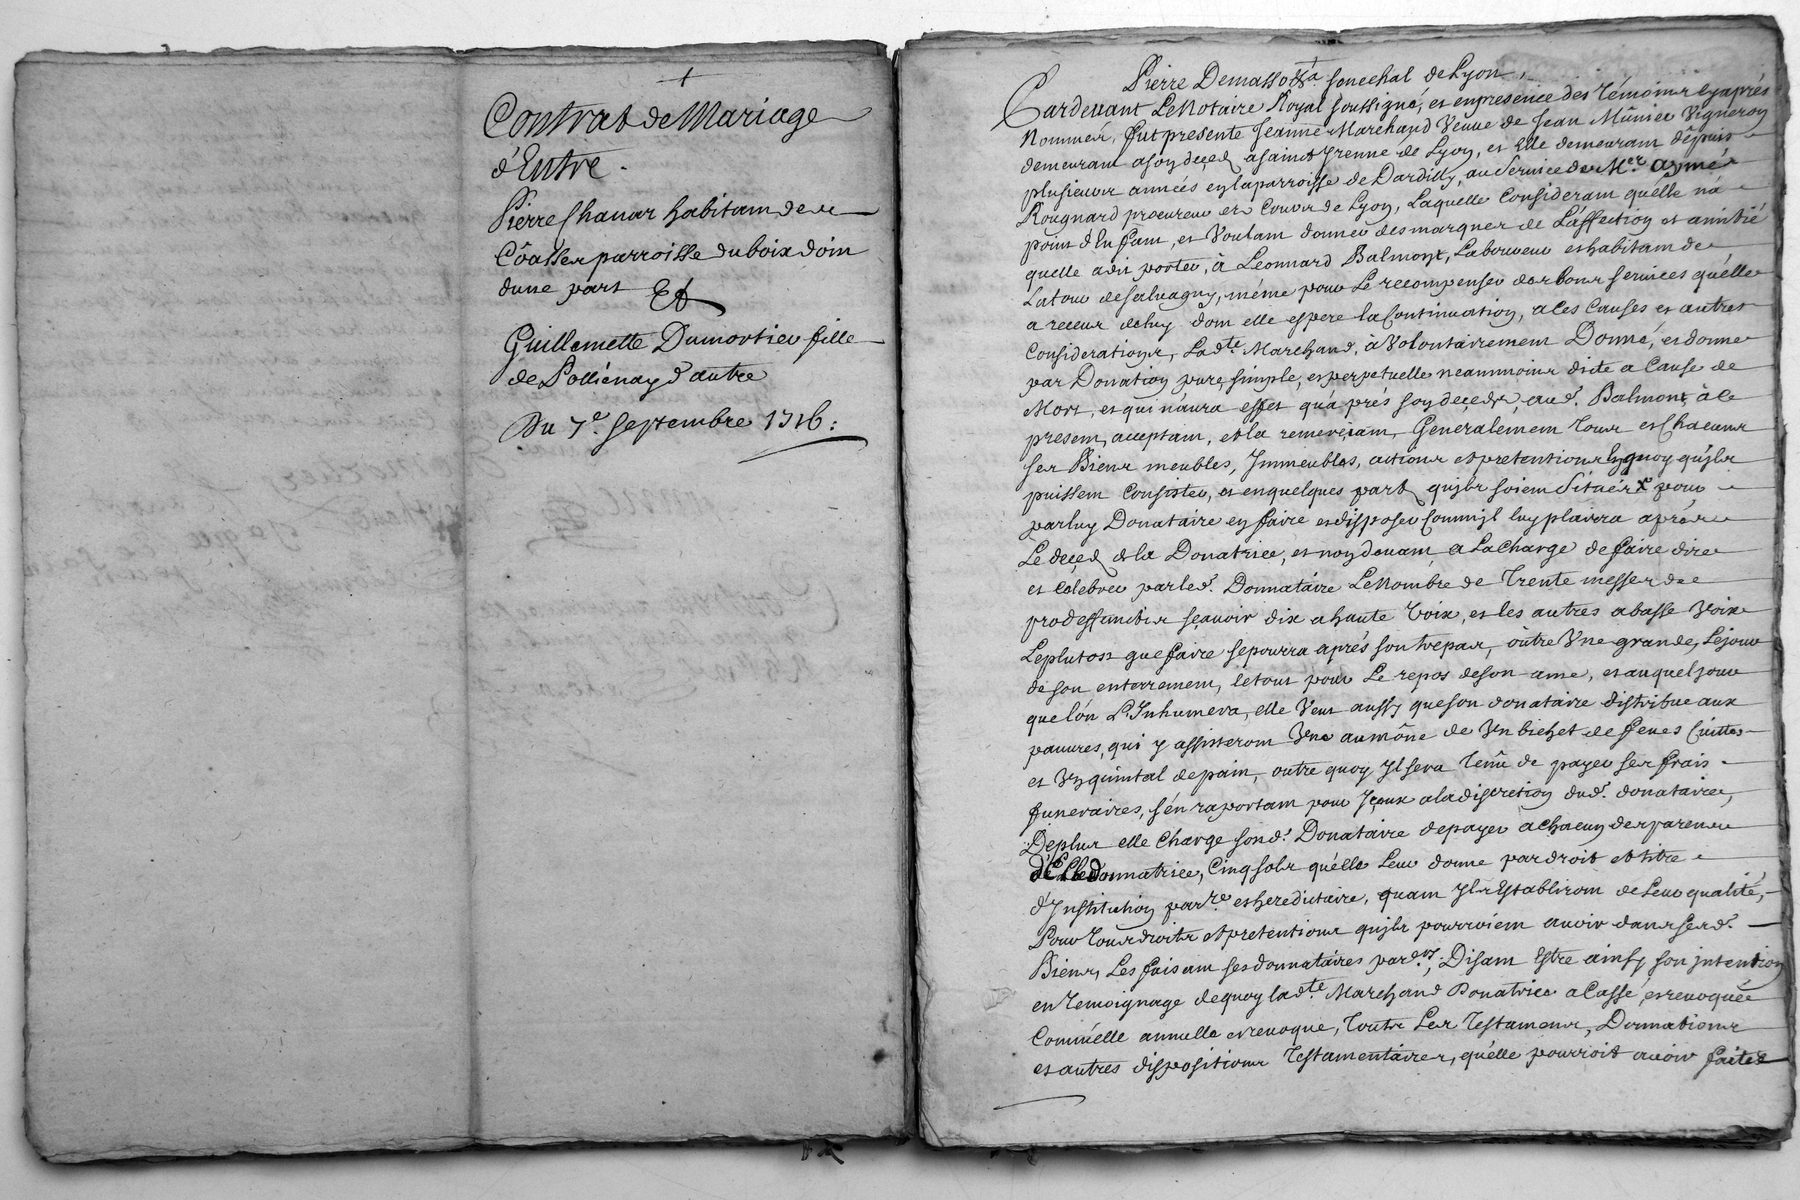 Contrat de Mariage
d'Entre
Pierre Chanar habitam de
Côasser parroisse du bois doin
dune part Et
Guillemette Dumortier fille
de Pollienay d'autre
Du 7e. Septembre 1716:
Pierre Demasso Senechal de Lyon,
Pardevant Le Notaire Royal soussigné, et en presence des Témoins cy après
Nommés, fut presente Jeanne Marchand Veuve de Jean Mûnier Vigneron
demeurant a son deçed a sainct Jrenne de Lyon, et Elle demeurant dêpuis
plusieurs années en la parroisse de Dardilly, au Service de Mer. aymé
Rougnard procureur es Cours de Lyon, Laquelle Consideram quelle na
point d'Enfant, et Voulam donner des marques de L'affection et amitié
quelle a dit porter, à Leonnard Balmont, Laboureur et habitam de
Latour de Salvagny, même pour Le recompenser des bons services quelle
a receus de luy dom elle espere la Continuation, a Ces Causes et autres
Considerations, Ladte. Marchand, à Volontairement Donné, et donne
par Donation pure, simple, et perpetuelle neammoins dite a Cause de
Mort, et qui n'aura effet qu'a prés son deçed, aud. Balmont, à Ce
presem, acceptam, et la remerçiam, Generalement Tous et Chacuns
ses Biens meubles, Jmmeubles, actions et pretentions en quoy qu'jls
puissem Consister, et en quelques part qu'jls soiem Situés pour
par luy Donataire en faire et disposer Comm'jl luy plaira après
Le deçed de la Donatrice, et non devam, a La Charge de faire dire
et Celebrer par led. Donnataire Le Nombre de Trente messes de
pro deffunctis sçavoir dix a haute Voix, et les autres a basse Voix
Le plutost que faire se pourra aprés son trepas, oûtre Vne grande, Le jour
de son enterrement, le tout pour Le repos de son ame, et auquel jour
que l'on L'Inhumera, elle Veut aussy que son donataire distribue aux
pauvres, qui y assisterom Vne aumône de Vn bichet de feves Cuittes
et Vn quintal de pain, outre quoy Jl sera Tenû de payer ses frais
funeraires, s'en raportam pour Jçeux a la discretion dud. donataire,
De plus elle Charge sond. Donataire de payer a Chacun des parens
de La donnatrice, Cinq sols qu'elle Leur donne par droit et titre
d'Jnstitution parre. et hereditaire, quam Jls Establirom de Leur qualité,
Pour Tous droits et pretentions qu'jls pourroiem avoir dans sesd.
Biens, Les faisam ses donnatáires pares, Disam Estre ainsy son jntention
en Temoignage de quoy ladte. Marchand Donatrice a Cassé, et revoquée
Comm'elle annulle et revoque, Toutes Les Testamens, Donnations
et autres dispositions Testamentaires, qu'elle pourroit avoir faites